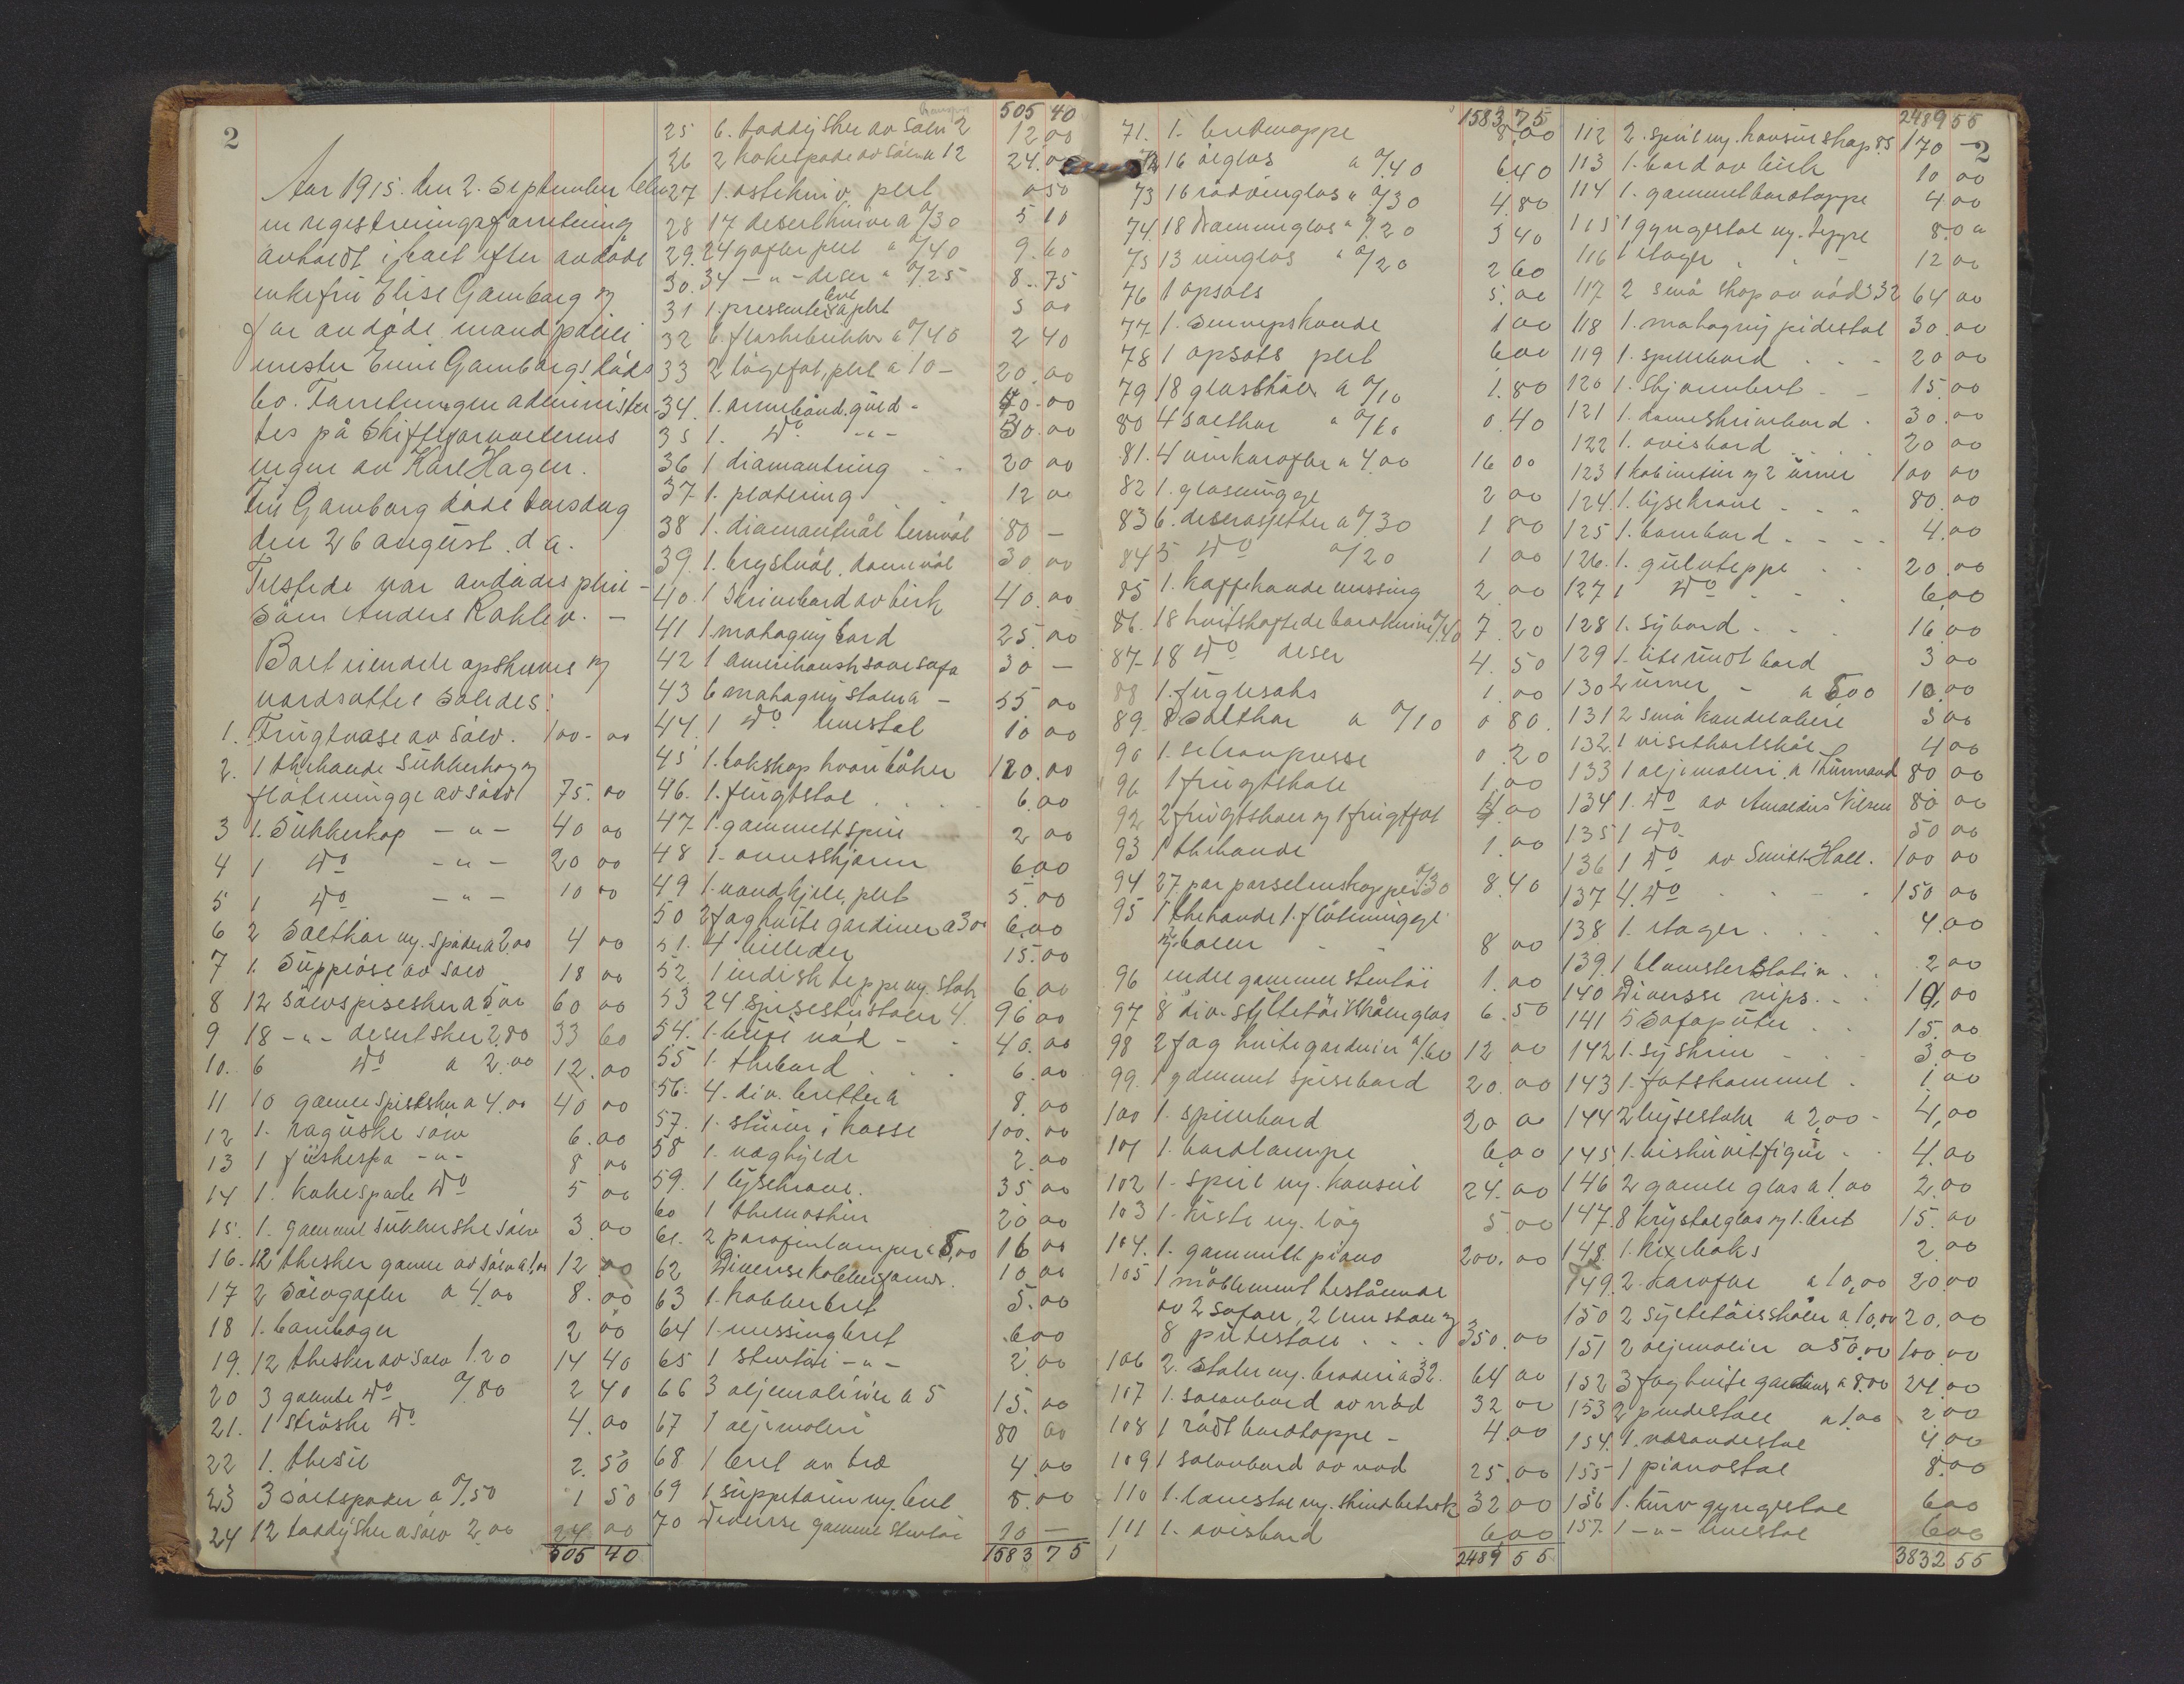 2
Aar 1915. den 2. September blev
en registreringsforretning
avholdt i boet efter avdöde
enkefru Elise Gamborg og
för avdöde mand politi
mester Gamborgs döds
bo. Forretningen administer
tes på Skifteforvalterens
vegne av Karl Hagen.
Fru Gamborg döde torsdag
den 26 august d.a.
Tilstede var avdödes pleie-
sön Anders Rahlev. -
Boet eiendele opskreves og
værdsattes således:
1. 1 Frugtvase av sölv. 100-00
2. 1 thekande Sukkerkop og
flötemugge av sölv 75.00
3 1. Sukkerkop -"- 40 00
4 1 Do -"- 20 00
5 1 Do -"- 10 00
6 2 Saltkar m. spader a 2.00 4 00
7 1. Suppeöse av sölv 18 00
8 12 sölvspiseskeer a 5 00 60 00
9 18 -"- desertskeer 2.80 33 60
10. 6 Do a 2.00 12.00
11 10 gamle spiseskeer a 4.00 40 00
12 1. raguske sölv 6.00
13 1 fiskespa -"- 8.00
14 1. kakespade Do 5 00
15. 1. gammel sukkerske sölv 3.00
16. 12 theskeer gamle av sölv a 1.00 12.00
17 2 Sölvgafler a 4.00 8.00
18 1. barnbæger 2 00
19. 12 theskeer av sölv 1.20 14 40
20 3 gamle Do 0/80 2 40
21. 1 ströske Do 4.00
22 1. thesil 2.50
23 3 saltspader a 0/.50 1 50
24 12 toddyskeer a sölv 2.00 24 00
505 40
505 40
25 6. toddyskeer av sölv 2 12 00
26 2 kakespade av sölv a 12 24.00
27 1. ostekniv plet 0 50
28 17 desertknive a 0/30 5 10
29. 24 gafler plet a 0/40 9.60
30. 34 -"- deser " 0/.25 8.75
31 1. presenter a plet 3 00
32 6. flaskebrikker a 0/40 2 40
33 2 lågefat, plet a 10- 20.00
34. 1. armbånd. guld - 70.00
35 1. Do -"- 30.00
36 1 diamantring 20 00
37 1. platering 12 00
38 1. diamantnål 80 -
39. 1. brystnål. damenål 30.00
40. 1 Skrivebord av birk 40.00
41 1. mahogny bord 25.00
42 1 amerikansk sovesofa 30 -
43 6 mahogny stoler a - 55 00
44. 1 Do lænestol 10 00
45 1. bokskap hvori böker 120.00
46. 1. flugtstol 6.00
47 1. gammelt speil 2 00
48 1. ovnsskjærm 6.00
49 1. vandkjele, plet 5.00
50 2 fag hvite gardiner a 3 00 6.00
51. 4 billeder 15.00
52. 1 indisk teppe m. stok 6.00
53 24 spisestustoler 4. 96 00
54. 1. buffe nöd - 40.00
55 1. thebord 6.00
56. 4. div. bretter a 8.00
57. 1. stueur i kasse 100.00
58 1. væghylde 2.00
59. 1 lysekrone. 35 00
60 1 themaskin 20 00
61. 2 parafinlamper a 8.00 16 00
62 Diverse kobbergjenst. 10 00
63 1. kobberbret 5.00
64 1. messingbret 6.00
65 1 stentöi -"- 2.00
66 3 oljemalerier a 5 15.00
67 1 oljemaleri 80 00
68 1 bret av træ 4.00
69 1 suppeterin m. bret 8.00
70 Diverse gammel stentöi 10 -
1583 75
1583 75
71. 1. brikmappe 8.00
72 16 ölglas a 0/.40 6.40
73 16 rödvinglas " 0/30 4.80
74. 18 Dramminglas " 0/.20 3 40
75 13 vinglas " 0/20 2 60
76 1 opsats 5.00
77 1. Sennepskande 1 00
78 1 opsats plet 6 00
79 18 glasskåler a 0/10 1.80
80 4 saltkar " 0/10 0.40
81. 4 vinkarafler a 4.00 16 00
82 1. glasmugge 2 00
83 6. desertasjetter a 0/.30 1 80
84 5 Do 0/20 1 00
85 1. kaffekande messing 2.00
86. 18 hvitskaftede bordknive 0/40 7.20
87. 18 Do deser 4.50
88 1. fuglesaks 1.00
89. 8 Saltkar a 0/10 0 80.
90 1. sitronpresse 0.20
91 1 frugtskaal 1.00
92 2 frugtskaaler og 1 frugtfat 4.00
93 1 thekande 1.00
94 27 par porselenskopper 0/.30 8.40
95 1 thekande 1. flötemugge
og boller 8 00
96 endel gammel stentöi 1.00
97 8 div. syltetöiskåler glas 6.50
98 2 fag hvite gardiner 0/60 12 00
99. 1 gammelt spisebord 20.00
100 1. spillebord 20 00
101 1. bordlampe 6.00
102 1. Speil m. konsol 24.00
103 1. kiste m. låg 5.00
104. 1. gammelt piano 200.00
105 1 möblement bestående
av 2 sofaer, 2 lænestoler og
8 pütestoler 350.00
106 2. Stoler m. broderi a 32. 64 00
107 1. salonbord av nöd 32 00
108 1 rödt bordteppe - 4.00
109 1 salonbord av nöd 25.00
110 1. lænestol m. skindbetræk 32 00
111 1. avisbord 6.00
2489 55
2489 55
2
112 2. speil m. konsolskap 85 170 -
113 1. bord av birk 10 00
114 1. gammelt bordteppe 4.00
115 1 gyngestol m. teppe 8.00
116 1 etager 12 00
117 2 små skap av nöd a 32 64 00
118 1. mahogny pidestal 30.00
119 1. spillebord 20 00
120 1. skjærmbret 15.00
121 1. dameskrivebord 30.00
122 1. avisbord 20 00
123 1 kabinetur og 2 urner 100 00
124. 1. lysekrone 80.00
125 1. barnbord 4.00
126. 1. gulvteppe 20.00
127 1 Do 6.00
128 1. Sybord 16.00
129 1. lite rundt bord 3 00
130 2 urner - a 5.00 10.00
131 2 små kandelabere 3 00
132. 1 visitkortskål 4 00
133 1 oljemaleri a 80 00
134 1. Do av Amaldus Nilsen 80 00
135 1 Do 50 00
136 1 Do av Smith-Hall. 100 00
137 4. Do 150 00
138 1. etager 4.00
139. 1 blomsterstativ 2 00
140 Diversse nips. 10,00
141 5 Sofaputer 15.00
142 1. syskrin 3.00
143 1. fotskammel 1 00
144 2 lysestaker a 2,00 - 4,00
145. 1. biskuitfigur 4.00
146 2 gamle glas a 1.00 2.00
147. 8 krystalglas og 1. bret 15.00
148. 1. kixboks 2 00
149. 2 karafler a 10,00 20.00
150 2 syltetöisskåler a 10,00 20.00
151 2 oljemalerier a 50.00 100.00
152 3 fag hvite gardiner a 8.00 24.00
153 2 pindestoler a 1.00 2.00
154. 1. verandastol 4.00
155 1 pianostol 8.00
156 1. kurv gyngestol 6.00
157. 1 -"- lænestol 6.00
3832 55